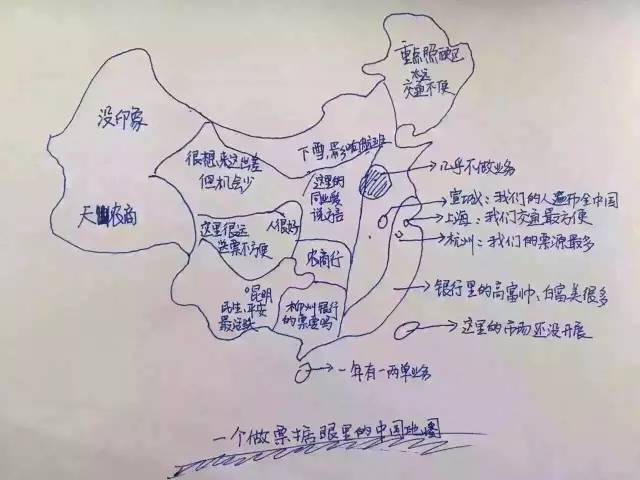 重点照顾区
太远
交通不便
没印象
天 农商
很想来这出差
但机会少
下雪,影响航班
这里的
同业爱
说方言
几乎不做业务
宣城:我们的人遍布全中国
上海:我们交通最方便
杭州:我们的票源最多
这里很远
送票不方便
人很好
农商行
昆明
民生、平安
最活跃
柳州银行
的票要吗
银行里的高富帅、白富美很多
这里的市场还没开展
一年有一两单业务
一个做票据眼里的中国地图